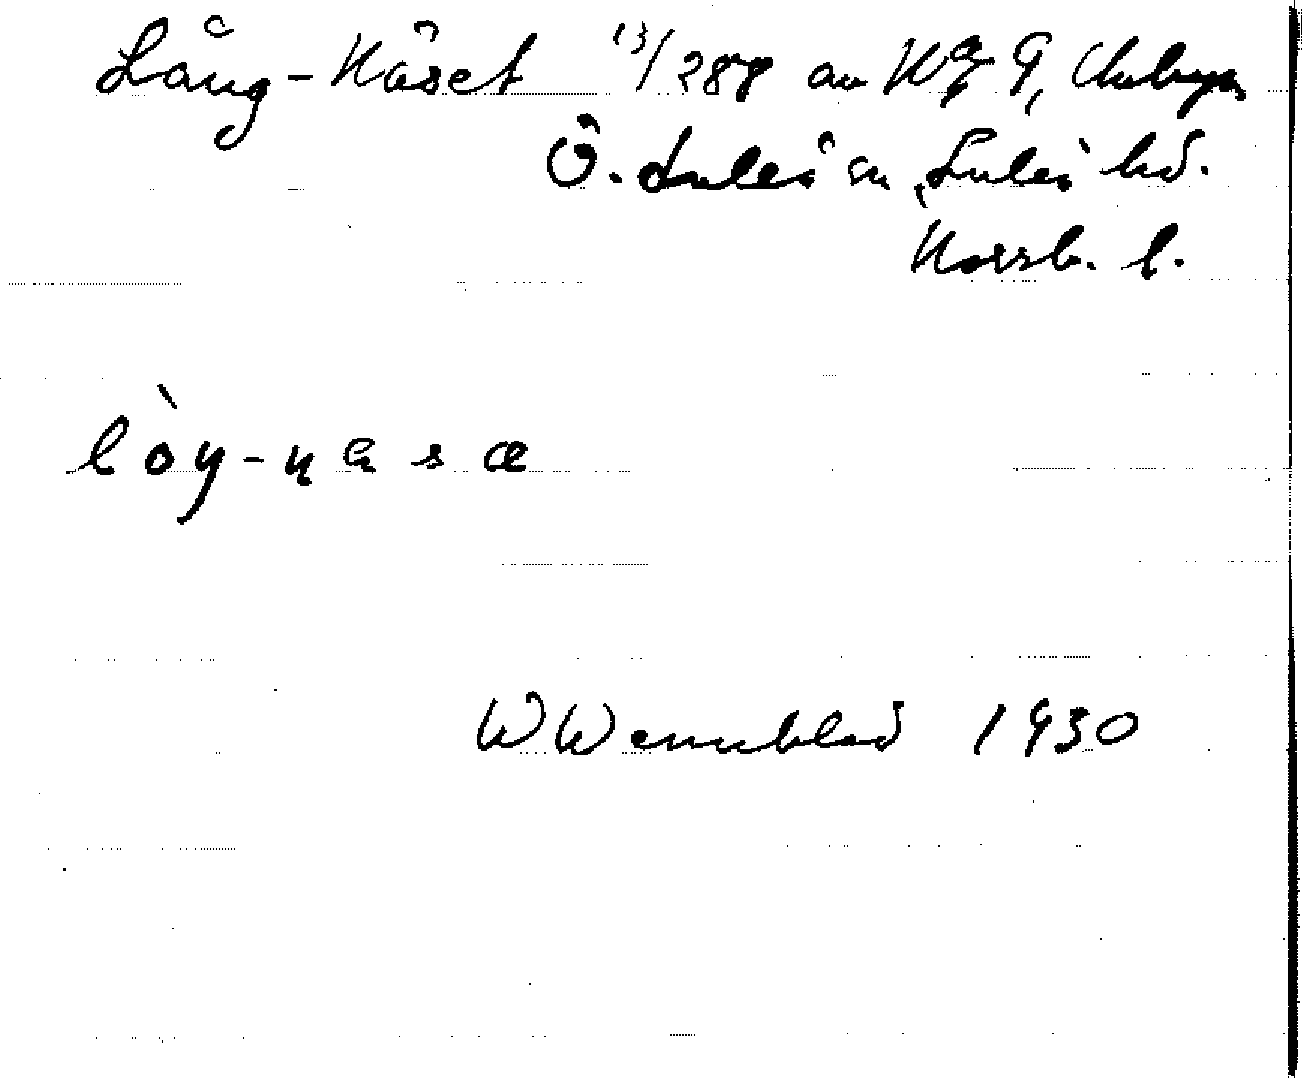 Lång-Näset 13/288 av
Ö. Luleå sn, Luleå hd.
Norrb. l.
lòŋ-nɑsæ
W Wennblad 1930